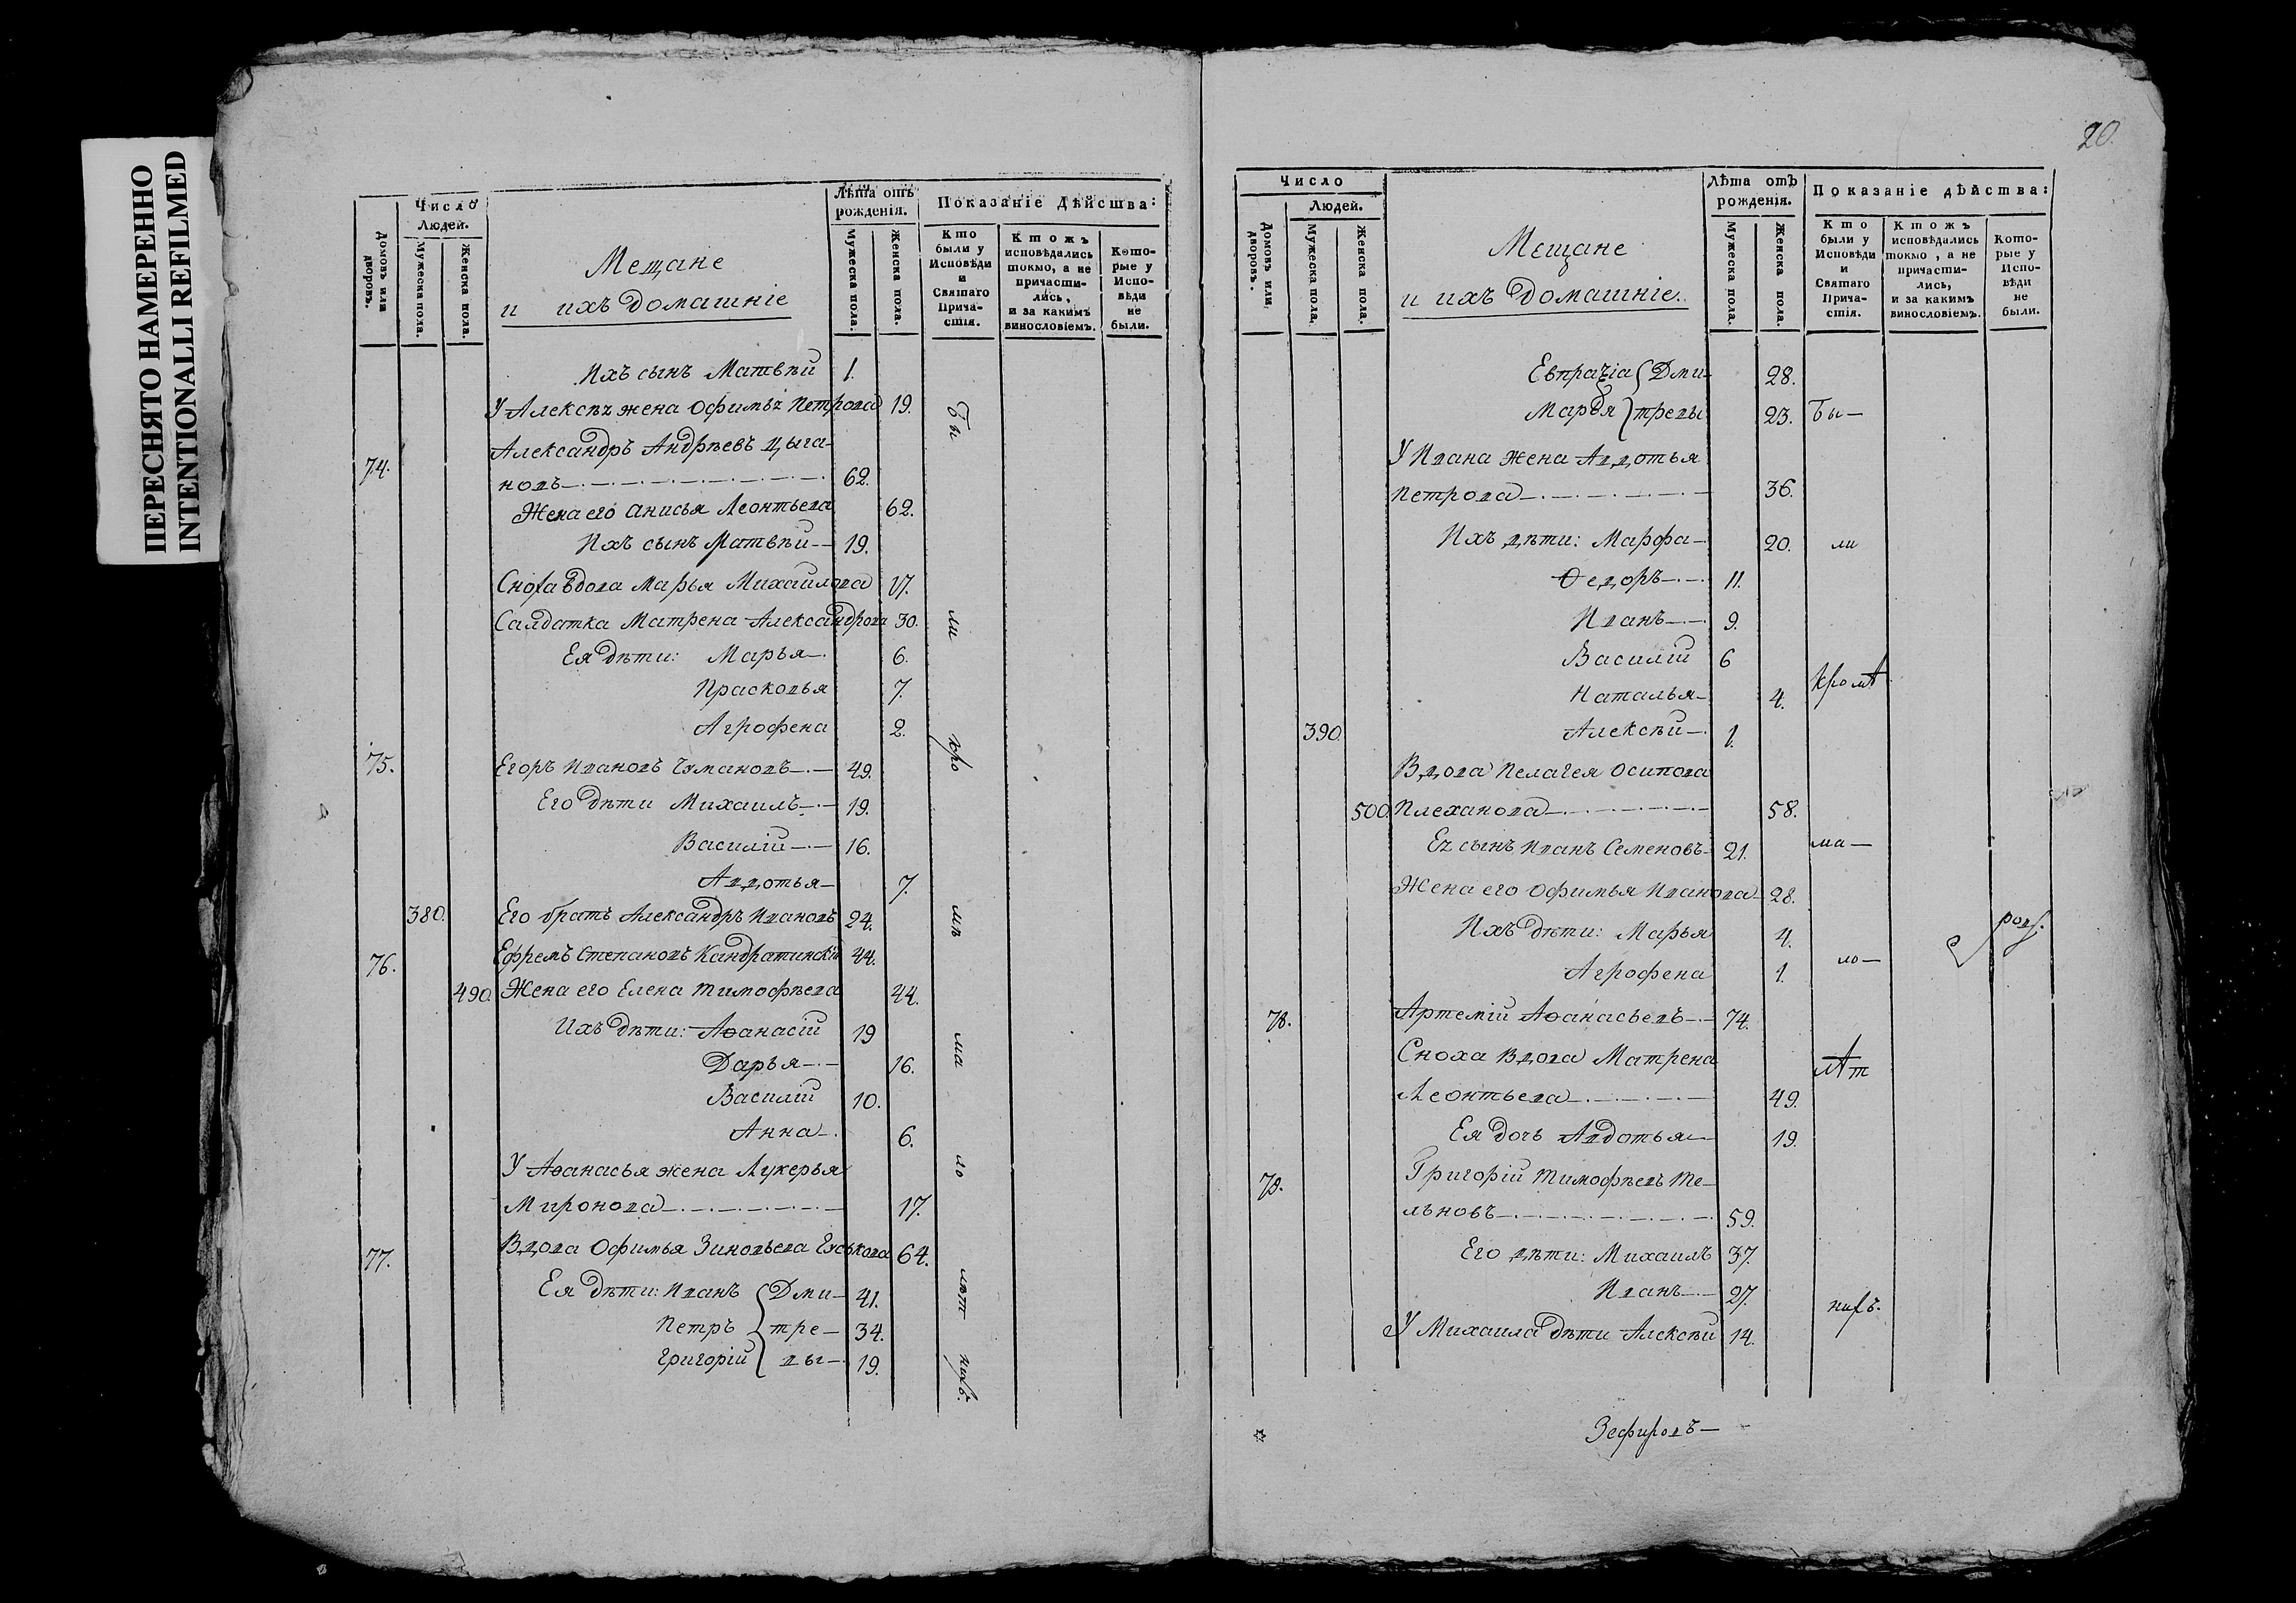 ПЕРЕСНЯТО НАМЕРЕННО
INTENTIONALLI REFILMED
Число
Людей.
Домовъ или дворовъ.
Мужеска пола.
Женска пола.
Мещане
и ихъ домашніе
Лѣта отъ рожденія.
Мужеска пола.
Женска пола.
Показаніе Дѣйства:
Кто были у Исповѣди и Святаго Причастія.
Ктожъ исповѣдались токмо, а не причастились, и за какимъ винословіемъ.
Которые у Исповѣди не были.
Ихъ сынъ Матвѣй 1.
У Алексѣя жена Офимья Петрова 19.
74. Александръ Андрѣевъ Цыга-
новъ 62.
Жена его Анисья Леонтьева 62.
Ихъ сынъ Матвѣй 19.
Сноха вдова Марья Михайлова
Салдатка Матрена Александрова 30.
Ея дѣти: Марья 6.
Прасковья 7.
Агрофена 2.
75. Егоръ Ивановъ Чумановъ 49.
Его дѣти Михаилъ 19.
Василій 16.
Авдотья 7.
380. Его братъ Александръ Ивановъ 24.
76. Ефремъ Степановъ Кандратинскій 44.
490 Жена его Елена Тимофѣева 44.
Ихъ дѣти: Аѳанасій 19
Дарья 16.
Василій 10.
Анна 6.
У Аѳанасья жена Лукерья
Миронова 17.
77. Вдова Офимья Зиновьева Гуськова 64.
Ея дѣти: Иванъ Дми- 41.
Петръ тре- 34.
Григорій вы 19.
Бы
ли
кро
мѣ
ма
ло
лѣт
нихъ.
20.
Число
Людей.
Домовъ или дворовъ.
Мужеска пола.
Женска пола.
Мещане
и ихъ домашніе.
Лѣта отъ рожденія.
Мужеска пола.
Женска пола.
Показаніе дѣйства:
Кто были у Исповѣди и Святаго Причастія.
Ктожъ исповѣдались токмо, а не причастились, и за какимъ винословіемъ.
Которые у Исповѣди не были.
Евпраѯіа Дми- 28.
Марья тревы 23. Бы-
У Ивана жена Авдотья
Петрова 36.
Ихъ дѣти: Марфа 20. ли
Ѳедоръ 11.
Иванъ 9.
Василій 6
Наталья 4. кромѣ
390. Алексѣй 1.
Вдова Пелагея Осипова
500. Плеханова 58.
Ея сынъ Иванъ Семеновъ 21. ма-
Жена его Офимья Иванова 28.
Ихъ дѣти: Марья 4.
Агрофена 1. ло-
78. Артемій Аѳанасьевъ 74.
Сноха вдова Матрена лѣт
Леонтьева 49.
Ея дочь Авдотья 19.
79. Григорій Тимофѣевъ Те-
льновъ 59.
Его дѣти: Михаилъ 37.
Иванъ 27. нихъ.
У Михаила дѣти Алексѣй 14.
Зефировъ